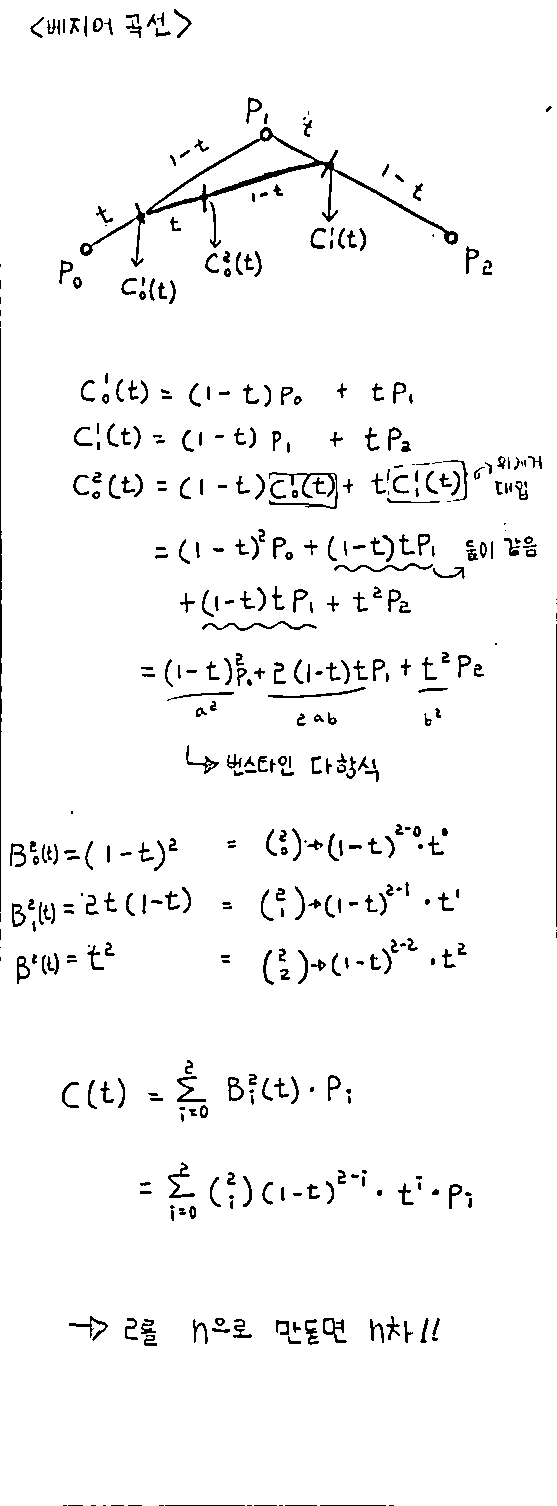 <베지어 곡선>
P₁
1-t
t
1-t
t
t
1-t
P₀
C₀¹(t)
C₀²(t)
C₁¹(t)
P₂
C₀¹(t) = (1-t)P₀ + tP₁
C₁¹(t) = (1-t) P₁ + tP₂
C₀²(t) = (1-t)C₀¹(t) + tC₁¹(t) → 위에거
대입
= (1-t)²P₀ + (1-t)tP₁ → 둘이 같음
+ (1-t)tP₁ + t²P₂
= (1-t)²P₀ + 2(1-t)tP₁ + t²P₂
a² 2ab b²
↳ 번스타인 다항식
B₀²(t) = (1-t)² = (²₀)→(1-t)²⁻⁰·t⁰
B₁²(t) = 2t(1-t) = (²₁)→(1-t)²⁻¹·t¹
B²(t) = t² = (²₂)→(1-t)²⁻²·t²
C(t) = Σ²ᵢ₌₀ Bᵢ²(t)·Pᵢ
= Σ²ᵢ₌₀ (²ᵢ)(1-t)²⁻ⁱ·tⁱ·Pᵢ
→ 2를 n으로 만들면 n차!!